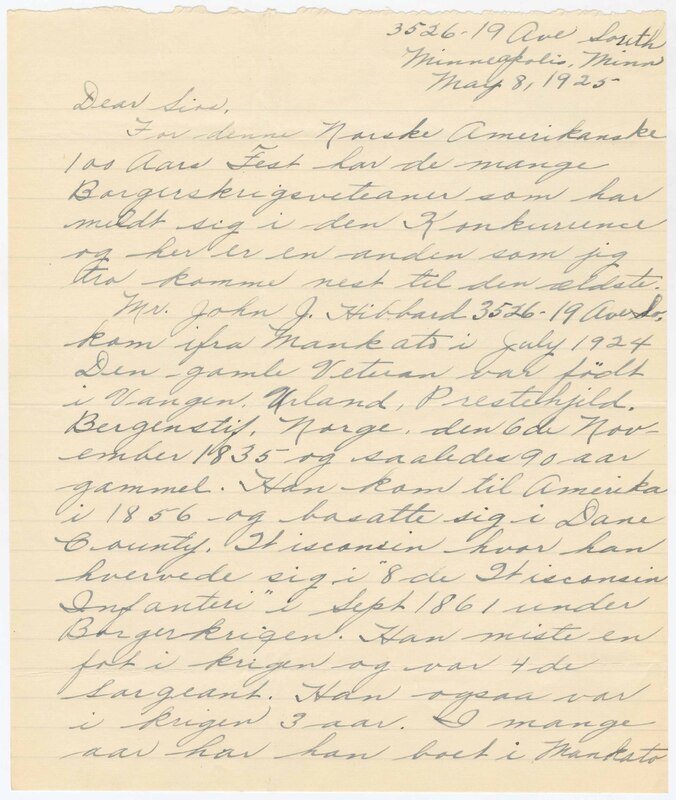 3526-19 Ave South
Minneapolis, Minn
May 8, 1925
Dear Sirs,
For denne Norske Amerikanske
100 Aars Fest har de mange
Borgerskrigsveteaner som har
meldt sig i den Konkurrence
og her er en anden som jeg
tro komme nest til den ældste.
Mr. John J. Hibbard 3526-19 Ave So.
kom ifra Mankato i July 1924
Den gamle Veteran var födt
i Vangen, Urland, Prestehjeld,
Bergenstif, Norge, den 6de Nov-
ember 1835 og saaledes 90 aar
gammel. Han kom til Amerika
i 1856 og bosatte sig i Dane
County, Wisconsin hvor han
hvervede sig i "8de Wisconsin
Infanteri" i Sept 1861 under
Borgerkrigen. Han miste en
fot i krigen og var 4de
Sargeant. Han ogsaa var
i krigen 3 aar. I mange
aar har han boet i Mankato